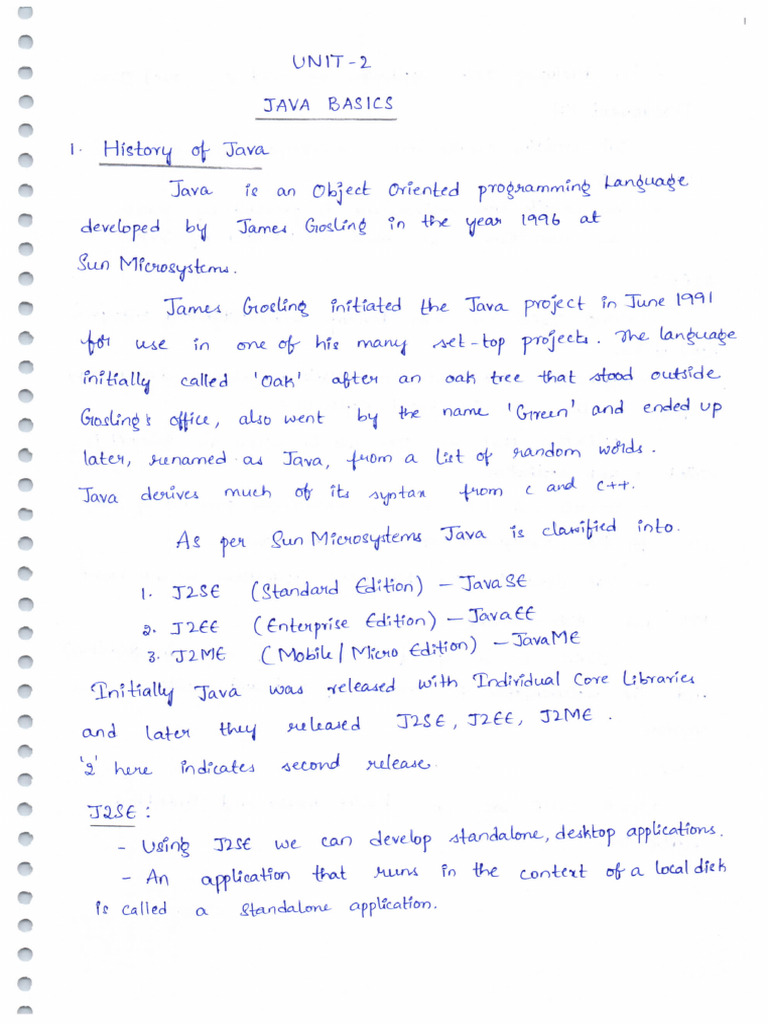 1
UNIT-2
JAVA BASICS
1. History of Java
Java is an Object Oriented programming Language
developed by James Gosling in the year 1996 at
Sun Microsystems.
James Gosling initiated the Java project in June 1991
for use in one of his many set-top projects. The language
initially called 'Oak' after an oak tree that stood outside
Gosling's office, also went by the name 'Green' and ended up
later, renamed as Java, from a list of random words.
Java derives much of its syntax from C and C++.
As per Sun Microsystems Java is classified into.
1. J2SE (Standard Edition) – JavaSE
2. J2EE (Enterprise Edition) – JavaEE
3. J2ME (Mobile/Micro Edition) – JavaME
Initially Java was released with Individual Core Libraries
and later they released J2SE, J2EE, J2ME.
'2' here indicates second release.
J2SE :
- Using J2SE we can develop standalone, desktop applications.
- An application that runs in the context of a local disk
is called a standalone application.